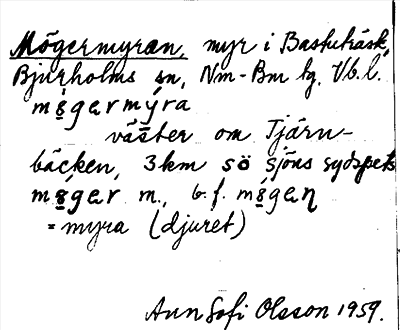 Mögermyran, myr i Bastuträsk,
Bjurholms sn, Nm-Bm tg. Vb.l.
møgermýra
väster om Tjärn-
bäcken, 3km sö sjöns sydspets
møger m., b.f. møgen
= myra (djuret)
Ann Sofi Olsson 1959.